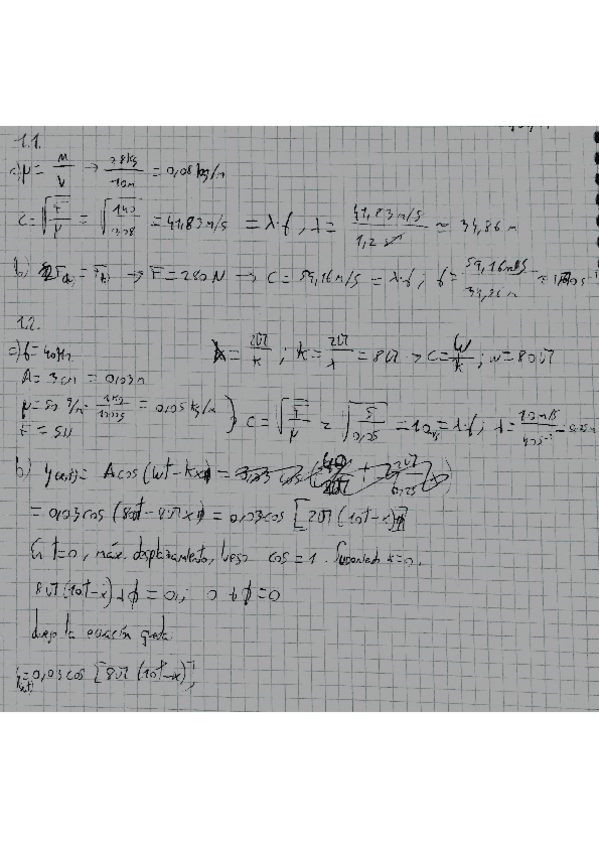 1.1.
a) μ = M/V → 0,8kg/10m = 0,08 kg/m
c = √(F/μ) = √(140/0,08) = 41,83 m/s = λ·f, λ = 41,83 m/s / 1,2 s⁻¹ ≈ 34,86 m
b) 2F = F → F = 280 N → c = 59,16 m/s = λ·f ; f = 59,16 m/s
1.2.
a) f = 40Hz
λ = 2π/k ; k = 2π/λ = 8π → c = ω/k ; ω = 80π
A = 3cm = 0,03m
μ = 50 g/m · 1kg/1000g = 0,05 kg/m
F = 5N
c = √(F/μ) = √(5/0,05) = 10 m/s = λ·f ; λ = 10 m/s / 40 s⁻¹ = 0,25 m
b) y(x,t) = A cos (ωt - kx + ϕ) =
= 0,03 cos (80πt - 8πx + ϕ) = 0,03 cos [2π (10t - x) + ϕ]
En t=0, máx. desplazamiento, luego cos = 1. Suponiendo x=0.
8π(10t - x) + ϕ = 0 ; 0 + ϕ = 0
Luego la ecuación queda
y(x,t) = 0,03 cos [8π (10t - x)];